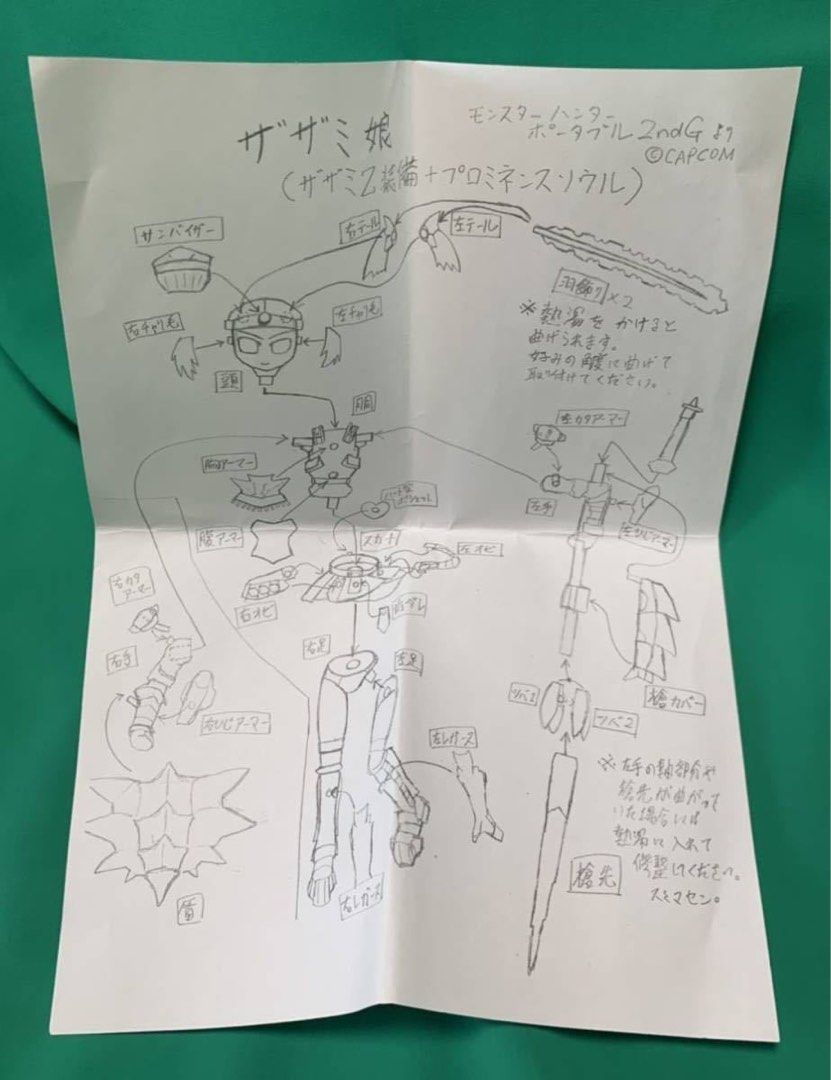 ザザミ娘
モンスターハンター
ポータブル 2ndG より
©CAPCOM
(ザザミZ装備+プロミネンスソウル)
サンバイザー
右テール
左テール
羽飾り×2
※熱湯をかけると
曲げられます。
好みの角度に曲げて
取り付けてください。
頭
胴
左カタアーマー
胸アーマー
左手
腹アーマー
スカート
左オビ
右オビ
右カタ
アーマー
右手
右足
左足
槍カバー
ツバ1
ツバ2
盾
右レガース
槍先
※左手の軸部分や
槍先が曲がって
いた場合には
熱湯に入れて
修整してください。
スミマセン。